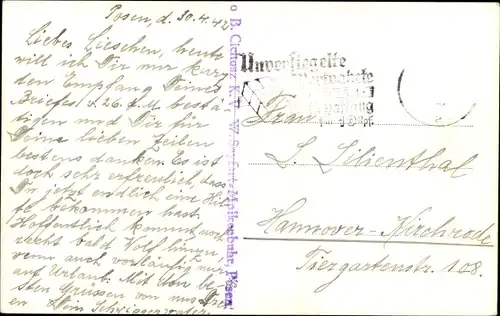 Posen, d. 30.4.42
Liebes Lieschen, heute
will ich Dir nur kurz
den Empfang Deines
Briefes v. 26. d. M. bestä-
tigen und Dir für
Deine lieben Zeilen
bestens danken. Es ist
doch sehr erfreulich, dass
Du jetzt endlich eine Hil-
fe bekommen hast.
Hoffentlich kommt auch
recht bald Wolf hinzu,
wenn auch vorläufig nur
auf Urlaub. Mit den be-
sten Grüssen von uns Drei-
en Dein Schwiegervater
Unversiegelte
Frau
L. Lilienthal
Hannover-Kirchrode
Tiergartenstr. 108.